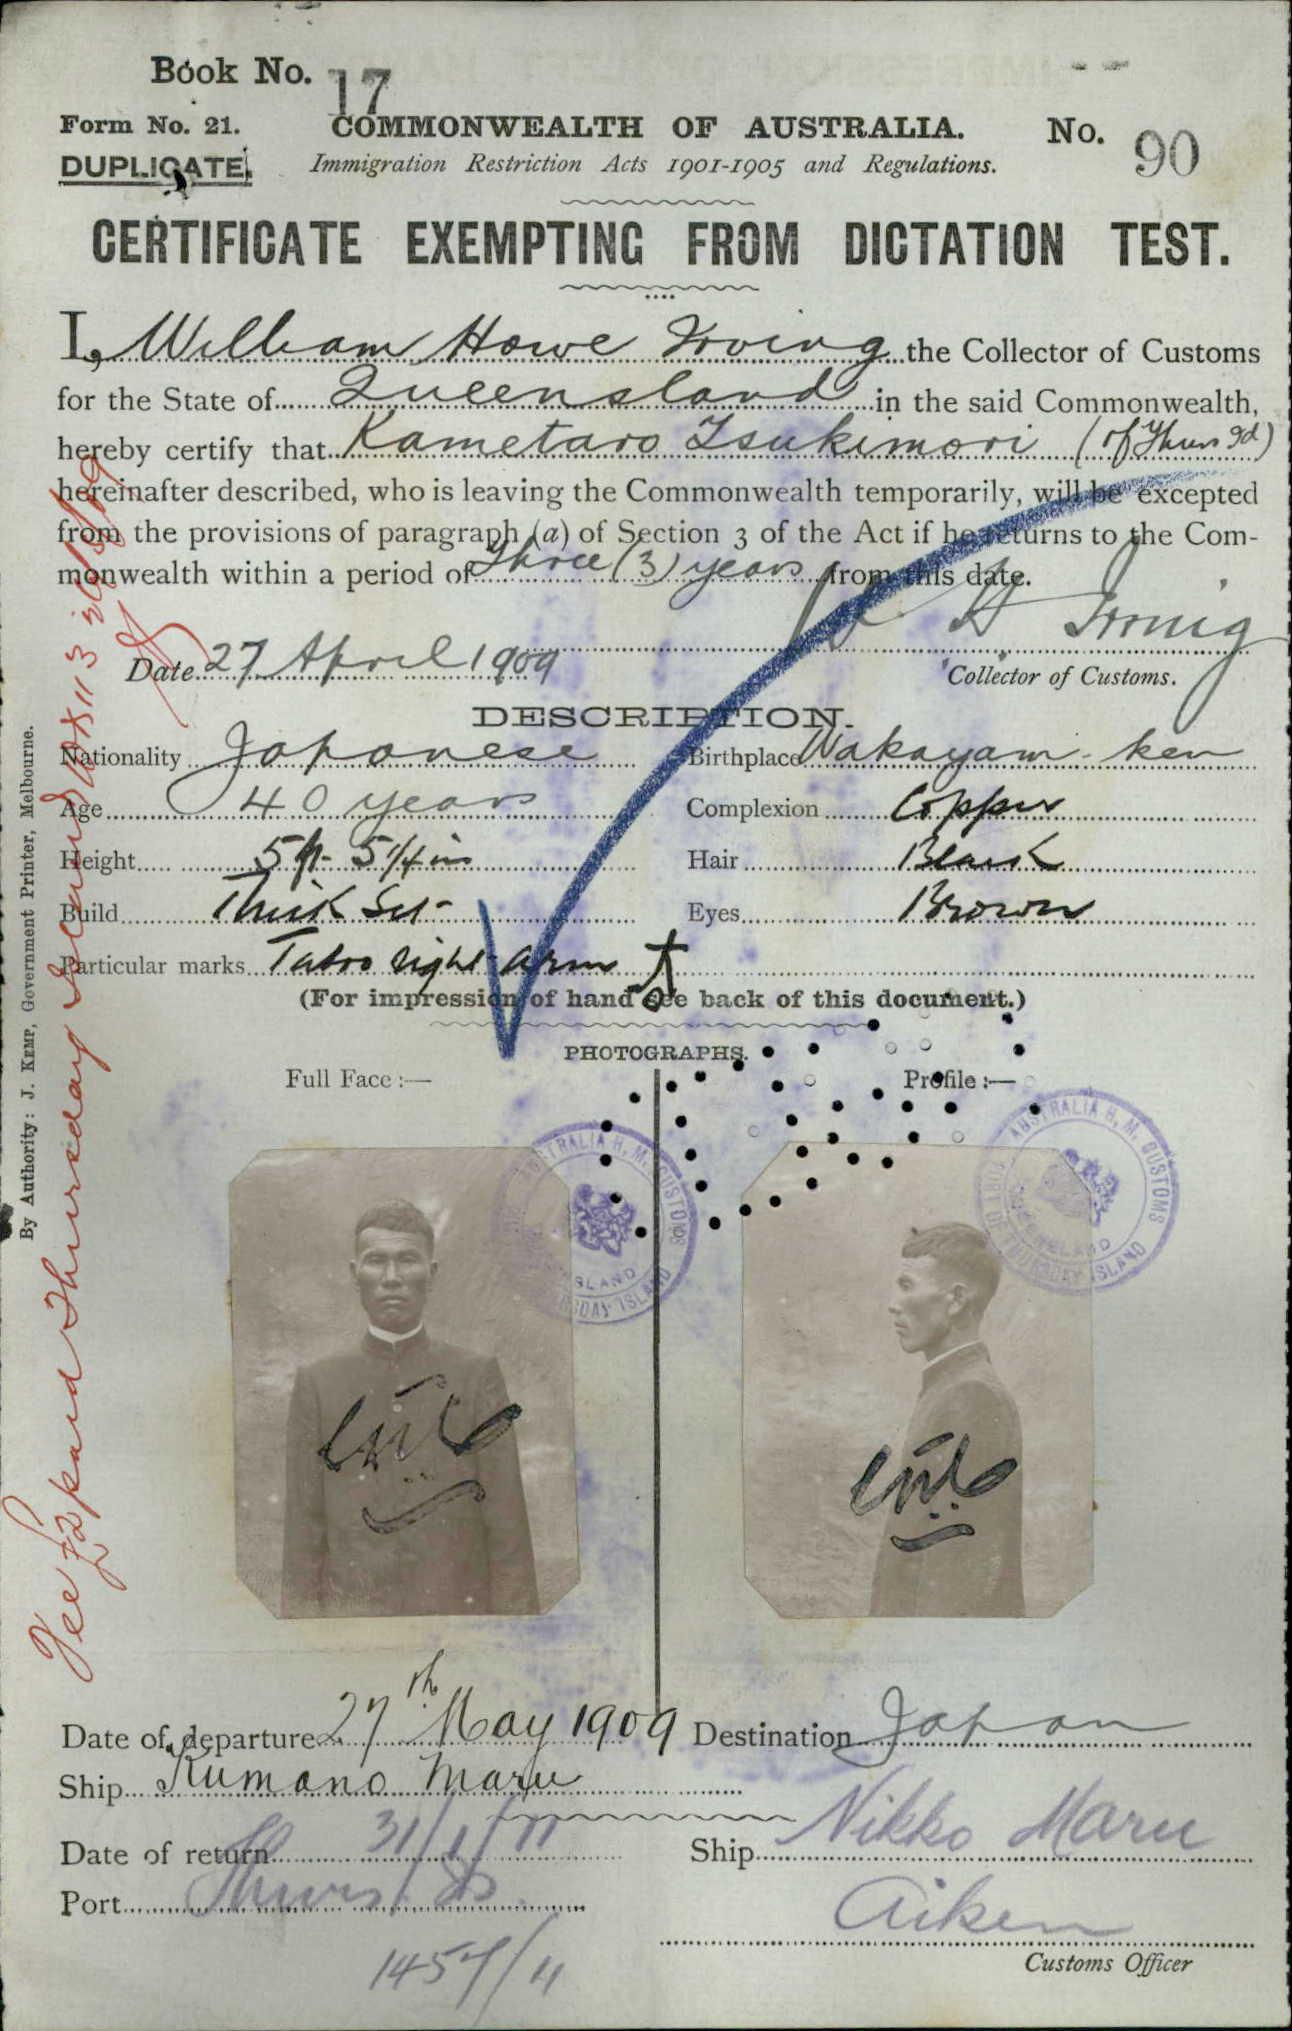 Book No. 17
Form No. 21.
COMMONWEALTH OF AUSTRALIA.
No. 90
DUPLICATE.
Immigration Restriction Acts 1901-1905 and Regulations.
CERTIFICATE EXEMPTING FROM DICTATION TEST.
I, William Howe Irving the Collector of Customs
for the State of Queensland in the said Commonwealth,
hereby certify that Kametaro Tsukimori (of Thurs Id)
hereinafter described, who is leaving the Commonwealth temporarily, will be excepted
from the provisions of paragraph (a) of Section 3 of the Act if he returns to the Com-
monwealth within a period of Three (3) years from this date.
W H Irving
Date 27 April 1909
Collector of Customs.
DESCRIPTION.
Nationality Japanese
Birthplace Wakayama-ken
Age 40 years
Complexion Copper
Height 5ft 5 1/4 in
Hair Black
Build Thick Set
Eyes Brown
Particular marks Tatoo right arm
(For impression of hand see back of this document.)
PHOTOGRAPHS.
Full Face :—
Profile :—
AUSTRALIA H. M. CUSTOMS
QUEENSLAND
THURSDAY ISLAND
AUSTRALIA H. M. CUSTOMS
PORT OF THURSDAY ISLAND
QUEENSLAND
Date of departure 27th May 1909
Destination Japan
Ship Kumano Maru
Date of return 31/1/11
Ship Nikko Maru
Port Thurs. Is.
Aiken
Customs Officer
1457/11
By Authority: J. KEMP, Government Printer, Melbourne.
Fee £2 paid Thursday Island